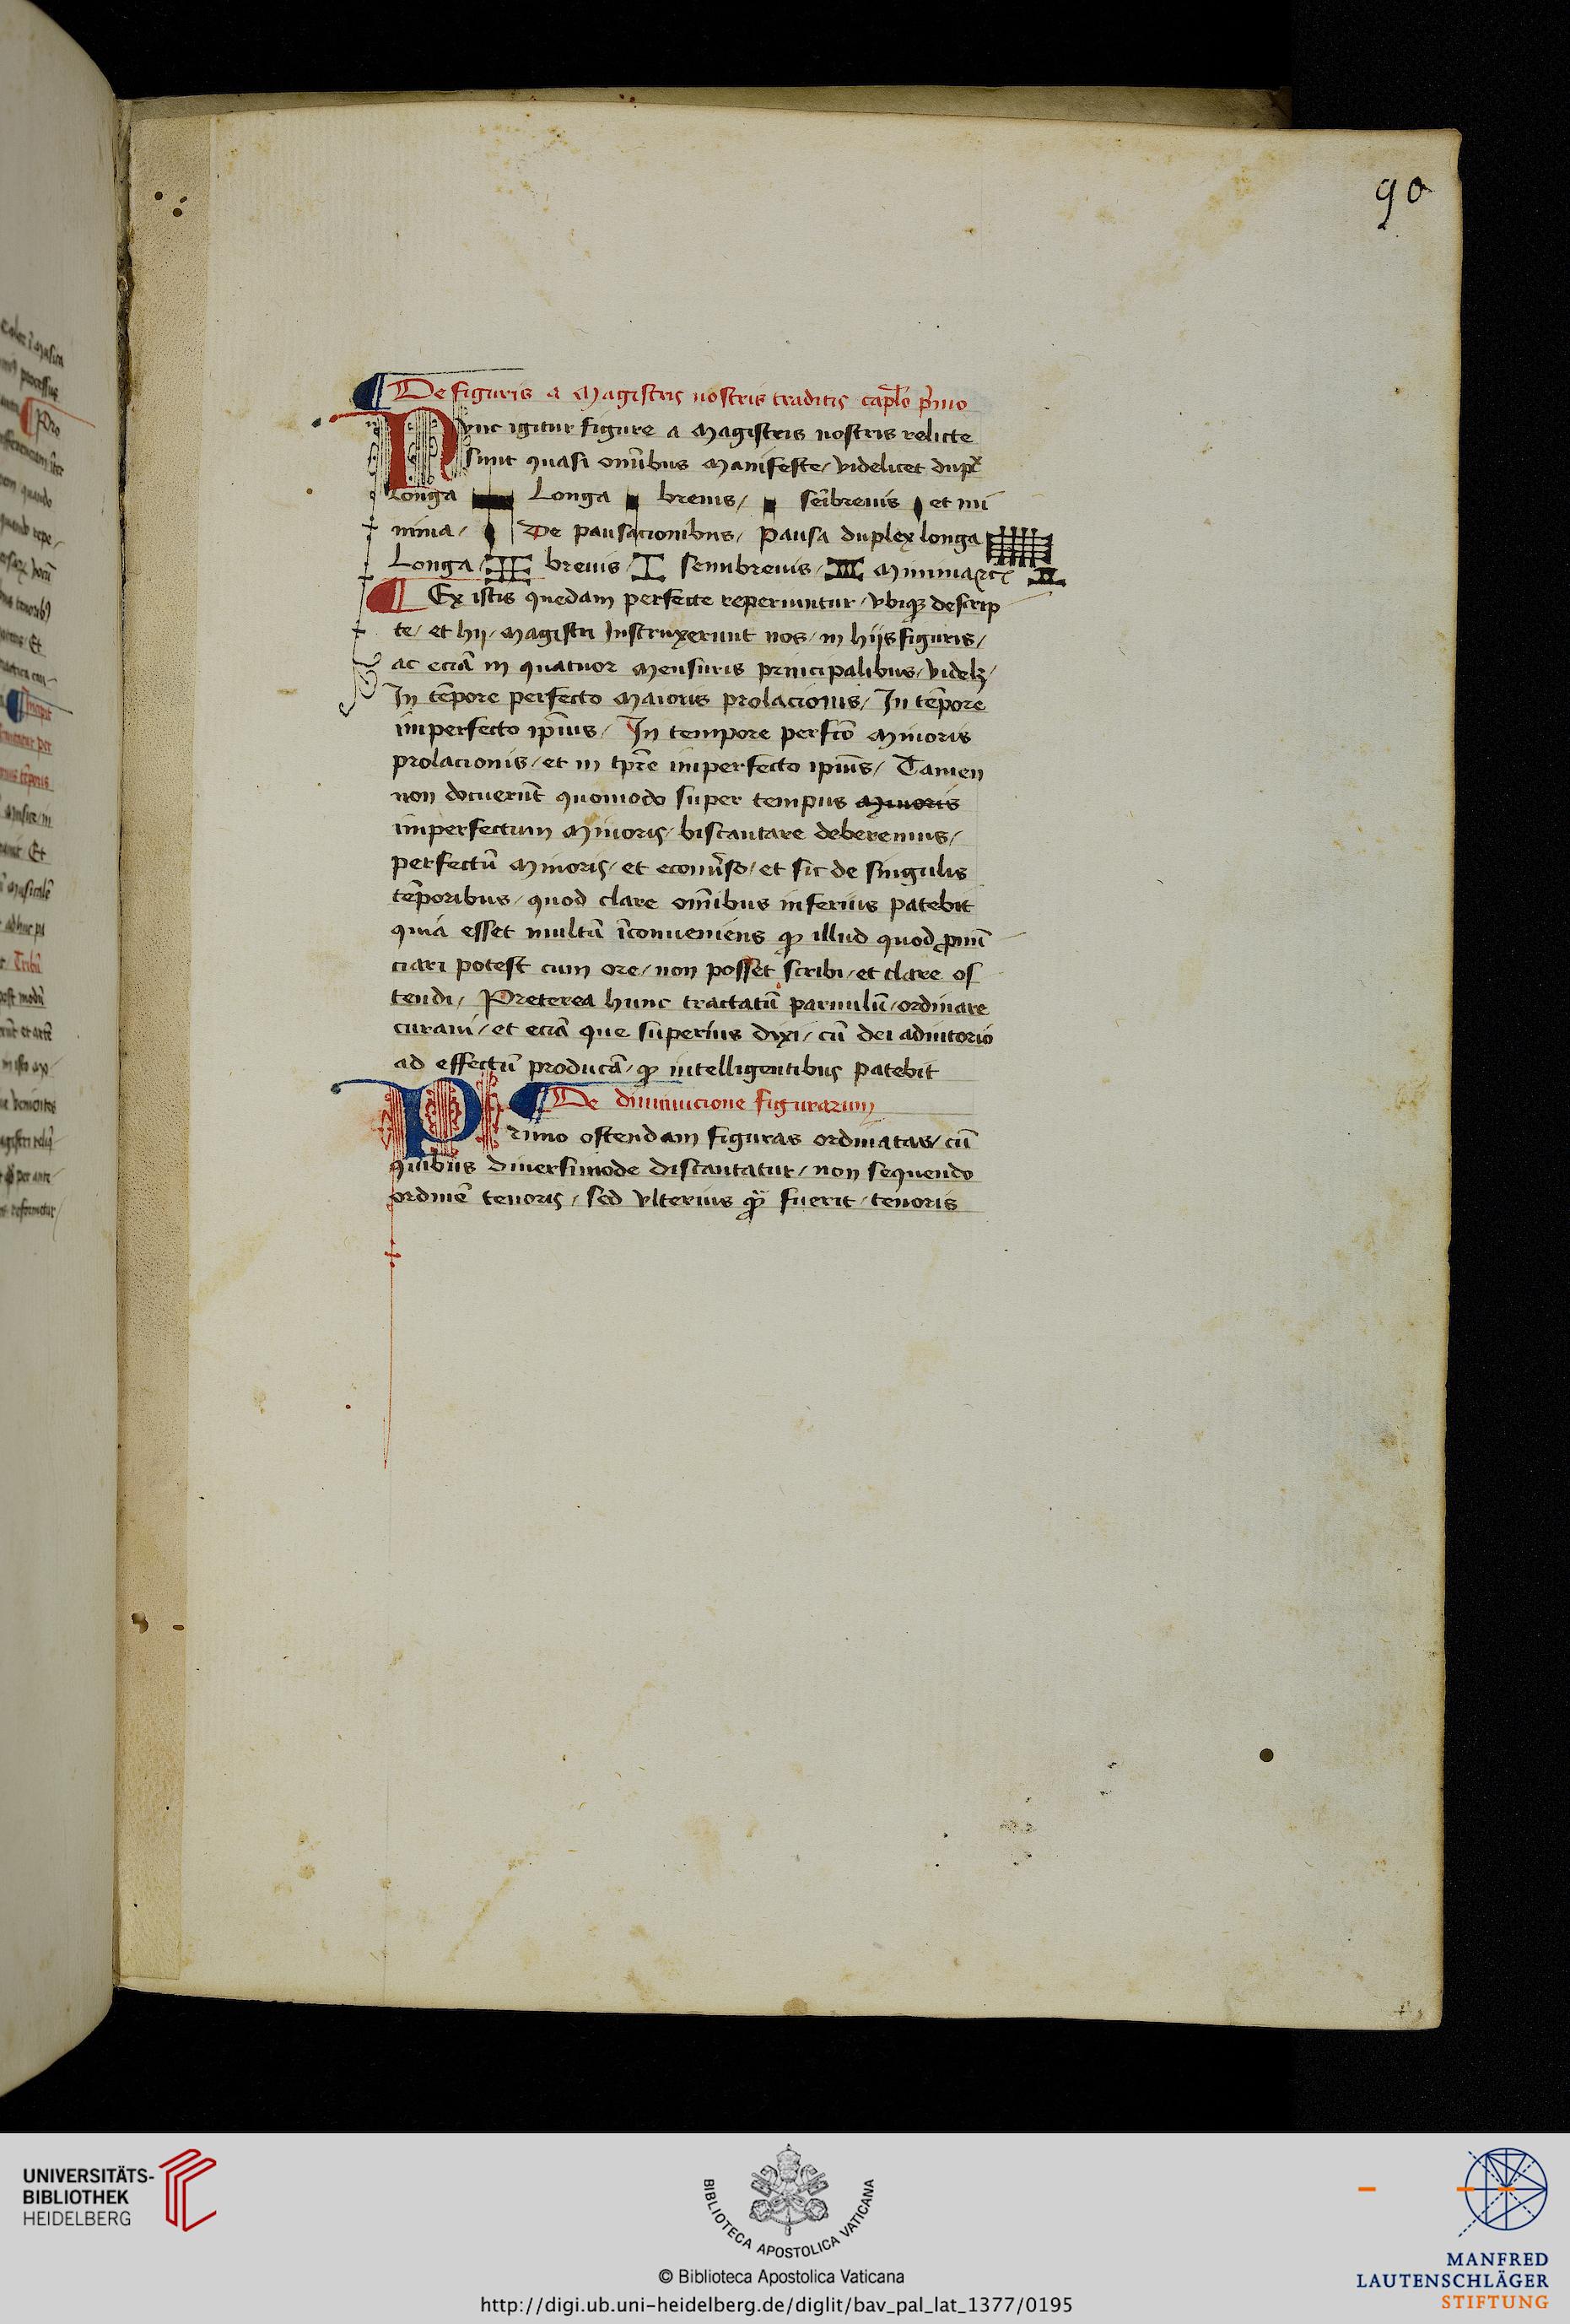 90
De figuris a Magistris nostris traditis caplo p̄mo
Nunc igitur figure a Magistris nostris relicte
sunt quasi om̄ibus Manifeste / videlicet dupl
Longa Longa breuis / sēibreuis et mi
nima / De pausacionibus / Pausa duplex longa
Longa / breuis / semibreuis / Minima
Ex istis quedam perfecte reperiuntur / vbiqꝫ descrip
te / et hij / Magistri Instruxerunt nos / in hijs figuris /
ac eciā in quatuor Mensuris principalibus / videlꝫ /
In tēpore perfecto Maioris prolacionis / In tēpore
imperfecto ip̄ius / In tempore perfc̄o Minoris
prolacionis / et in tp̄re imperfecto ipiūs / Tamen
non docuerūt quomodo super tempus Minoris
imperfectum Minoris / biscantare deberemus /
perfectū Minoris / et econūso / et sic de singulis
tēporibus / quod clare om̄ibus inferius patebit
quia esset multū īconueniens qꝫ illud quod ꝓnū
ciari potest cum ore / non posset scribi / et clare os
tendi / Preterea hunc tractatū paruulū / ordinare
curaui / et eciā que superius dixi / cū dei adiutorio
ad effectū producā / qꝫ intelligentibus patebit
De diminucione figurarum
Primo ostendam figuras ordinatas / cū
quibus diuersimode discantatur / non sequendo
ordinē tenoris / sed vlterius fuerit / tenoris
UNIVERSITÄTS-
BIBLIOTHEK
HEIDELBERG
BIBLIOTECA APOSTOLICA VATICANA
© Biblioteca Apostolica Vaticana
http://digi.ub.uni-heidelberg.de/diglit/bav_pal_lat_1377/0195
MANFRED
LAUTENSCHLÄGER
STIFTUNG